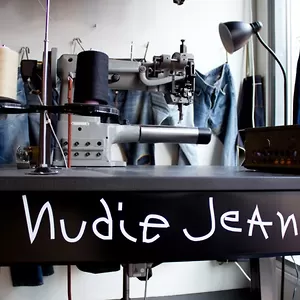 nudie Jean